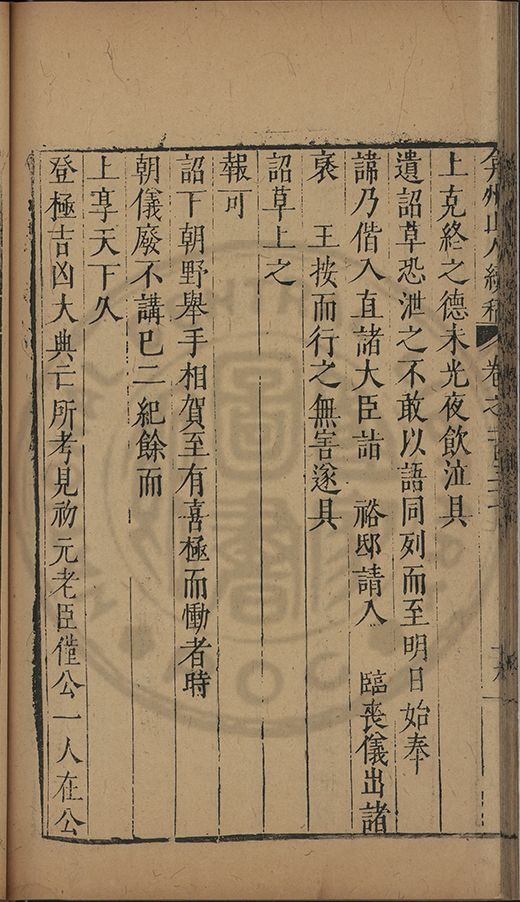 弇州山人續稿 卷之一百三十
上克終之德未光夜飲泣具
遺詔草恐泄之不敢以語同列而至明日始奉
諱乃偕入直諸大臣詣 裕邸請入 臨喪儀出諸
褎 王按而行之無害遂具
詔草上之
報可
詔下朝野舉手相賀至有喜極而慟者時
朝儀廢不講已二紀餘而
上享天下久
登極吉凶大典亡所考見初元老臣僅公一人在公